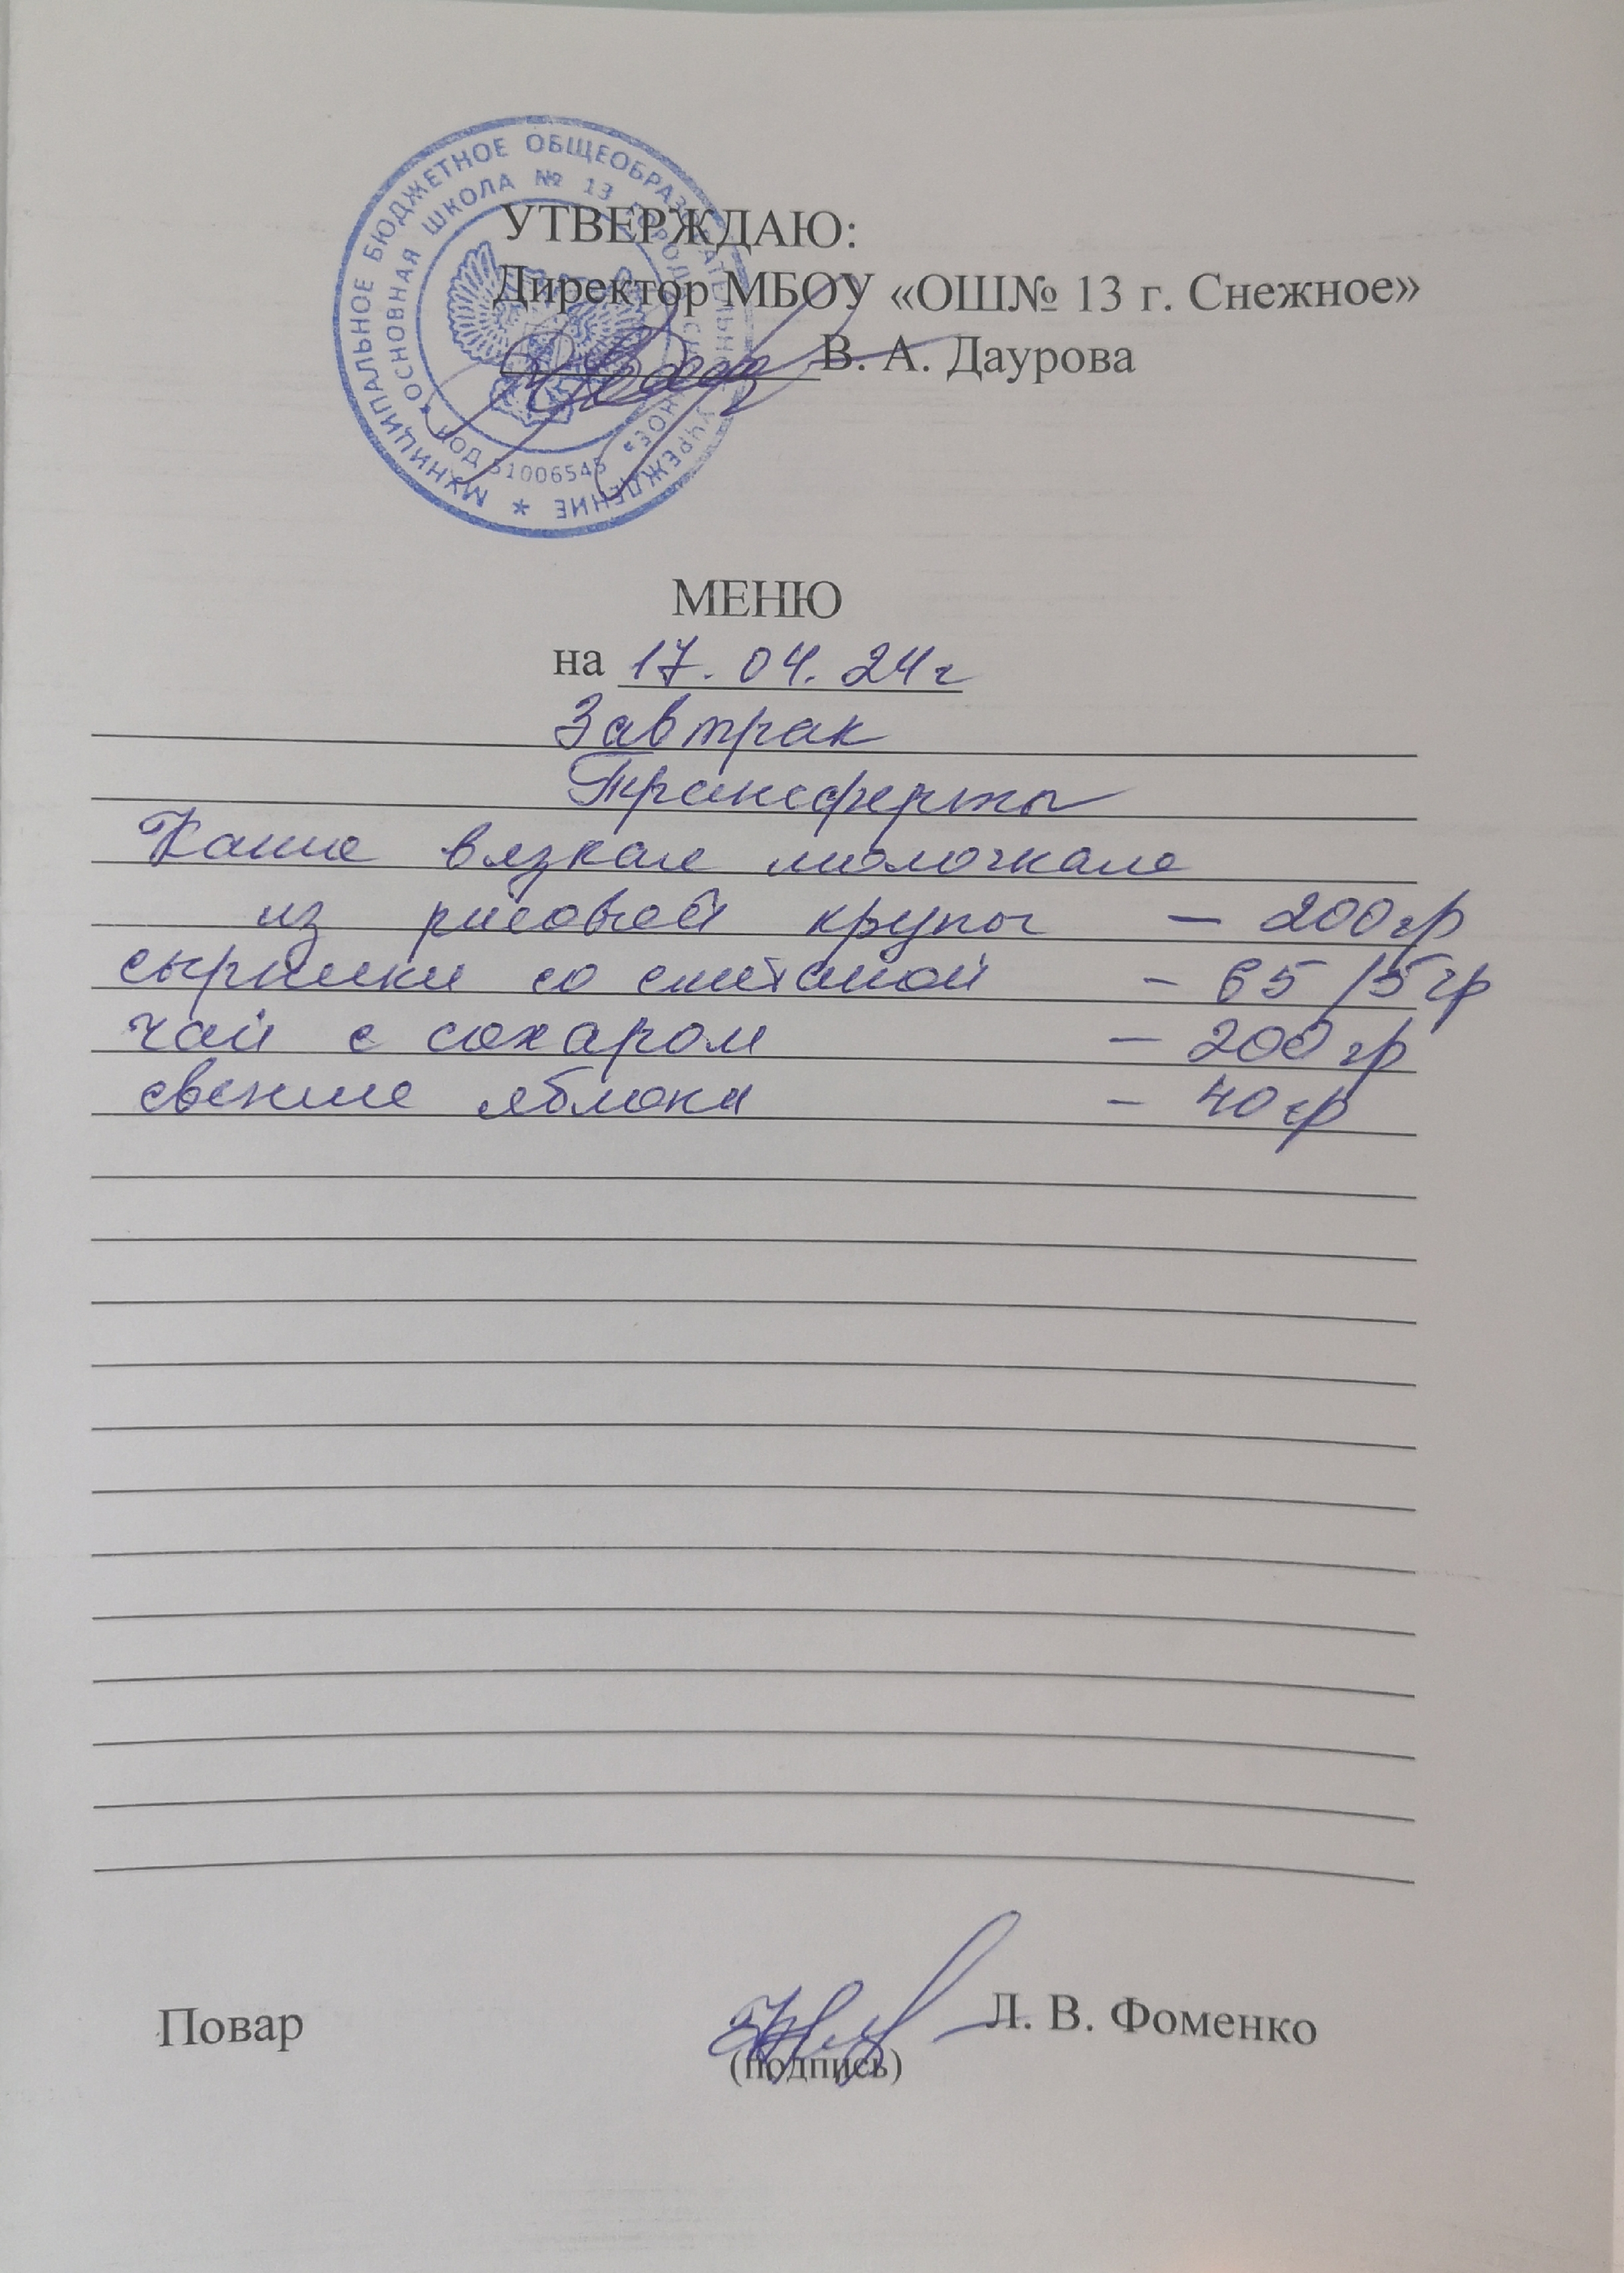 МУНИЦИПАЛЬНОЕ БЮДЖЕТНОЕ ОБЩЕОБРАЗОВАТЕЛЬНОЕ УЧРЕЖДЕНИЕ *
«ОСНОВНАЯ ШКОЛА № 13 ГОРОДА СНЕЖНОЕ»
КОД 51006545
УТВЕРЖДАЮ:
Директор МБОУ «ОШ№ 13 г. Снежное»
В. А. Даурова
МЕНЮ
на 17.04.24г
Завтрак
Трансферты
Каша вязкая молочная
из рисовой крупы - 200гр
сырники со сметаной - 65/5гр
чай с сахаром - 200гр
свежие яблоки - 40гр
Повар Л. В. Фоменко
(подпись)